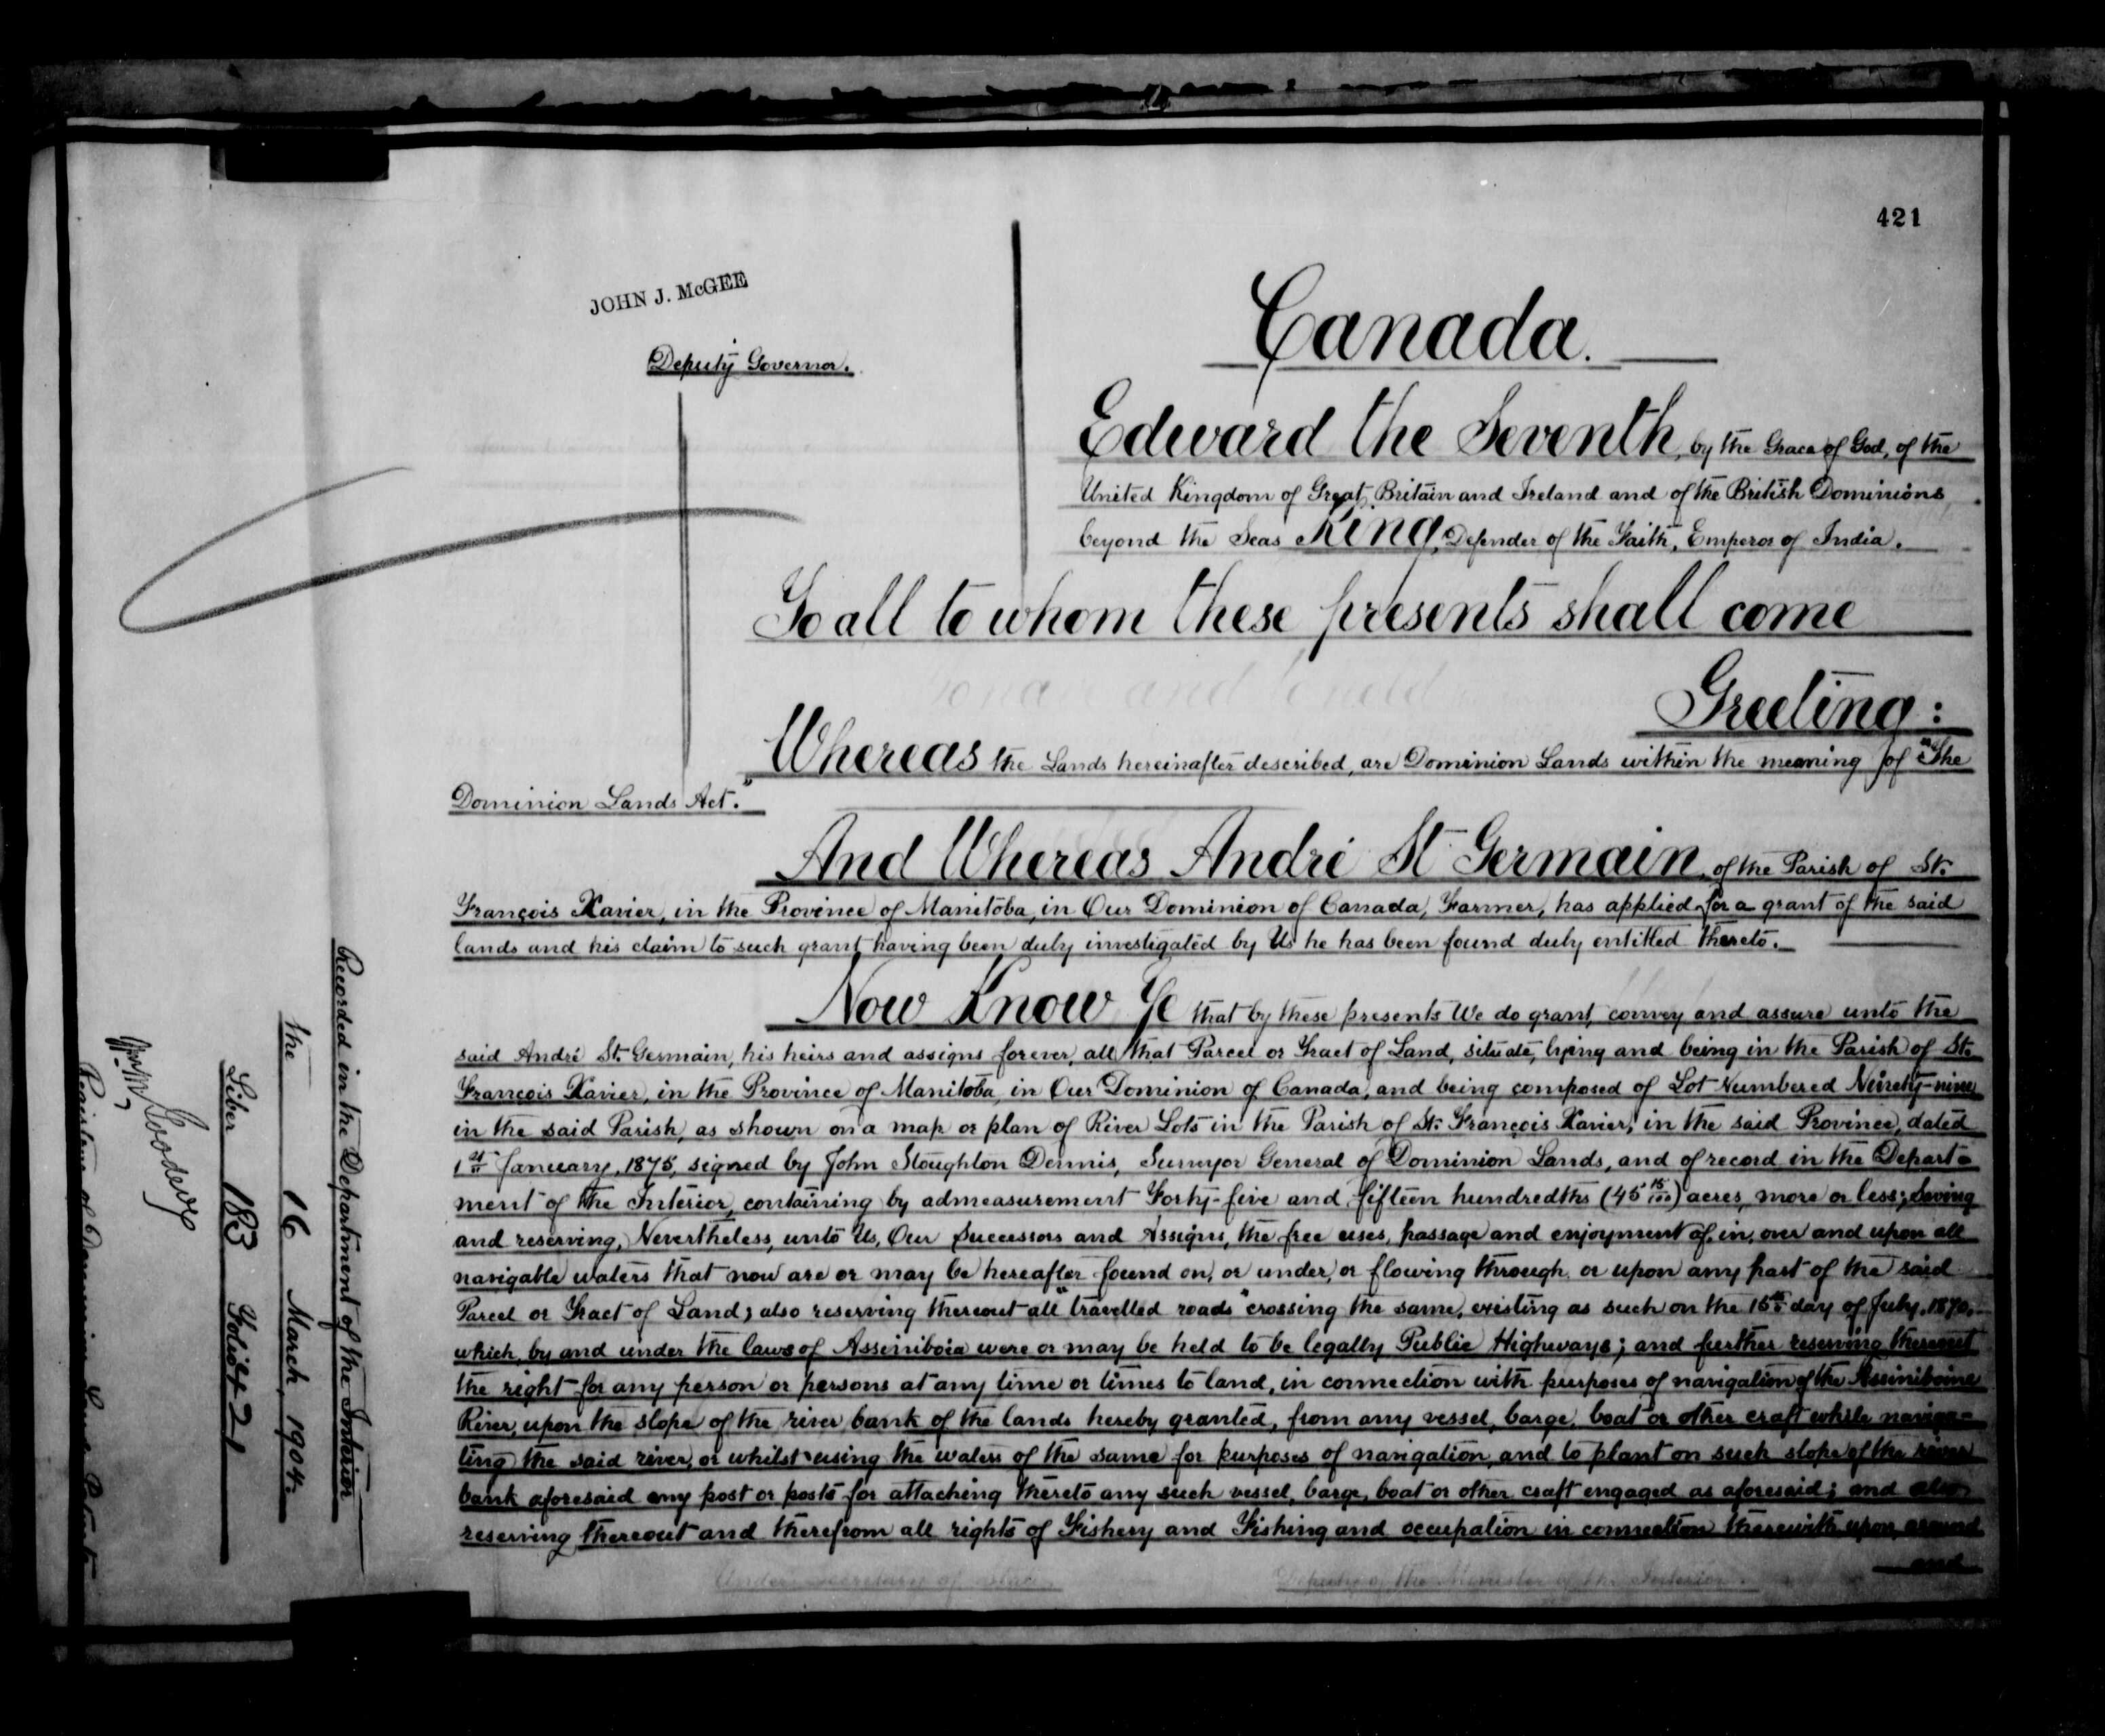 421
JOHN J. McGEE
Deputy Governor.
Canada.
Edward the Seventh, by the Grace of God, of the
United Kingdom of Great Britain and Ireland and of the British Dominions
beyond the Seas King, Defender of the Faith, Emperor of India.
To all to whom these presents shall come
Greeting:
Whereas the Lands hereinafter described, are Dominion Lands within the meaning of "The
Dominion Lands Act."
And Whereas André St. Germain, of the Parish of St.
François Xavier, in the Province of Manitoba, in Our Dominion of Canada, Farmer, has applied for a grant of the said
lands and his claim to such grant having been duly investigated by Us he has been found duly entitled thereto.
Now Know Ye that by these presents We do grant, convey and assure unto the
said André St. Germain, his heirs and assigns forever, all that Parcel or Tract of Land, situate, lying and being in the Parish of St.
François Xavier, in the Province of Manitoba, in Our Dominion of Canada, and being composed of Lot Numbered Ninety-nine
in the said Parish, as shown on a map or plan of River Lots in the Parish of St. François Xavier, in the said Province, dated
1st January, 1875, signed by John Stoughton Dennis, Surveyor General of Dominion Lands, and of record in the Depart-
ment of the Interior, containing by admeasurement Forty-five and fifteen hundredths (45 15/100) acres, more or less; Saving
and reserving, Nevertheless, unto Us, Our Successors and Assigns, the free uses, passage and enjoyment of, in, over and upon all
navigable waters that now are or may be hereafter found on, or under, or flowing through or upon any part of the said
Parcel or Tract of Land; also reserving thereout all "travelled roads" crossing the same, existing as such on the 15th day of July, 1870,
which, by and under the laws of Assiniboia were or may be held to be legally Public Highways; and further reserving thereout
the right for any person or persons at any time or times to land, in connection with purposes of navigation of the Assiniboine
River, upon the slope of the river bank of the lands hereby granted, from any vessel, barge, boat or other craft while naviga-
ting the said river, or whilst using the waters of the same for purposes of navigation, and to plant on such slope of the river
bank aforesaid any post or posts for attaching thereto any such vessel, barge, boat or other craft engaged as aforesaid; and also
reserving thereout and therefrom all rights of Fishery and Fishing and occupation in connection therewith upon, around
and
Under Secretary of State.
Deputy of the Minister of the Interior.
Recorded in the Department of the Interior
the 16 March, 1904.
Liber 183 Folio 421
Registrar of Dominion Lands Patents